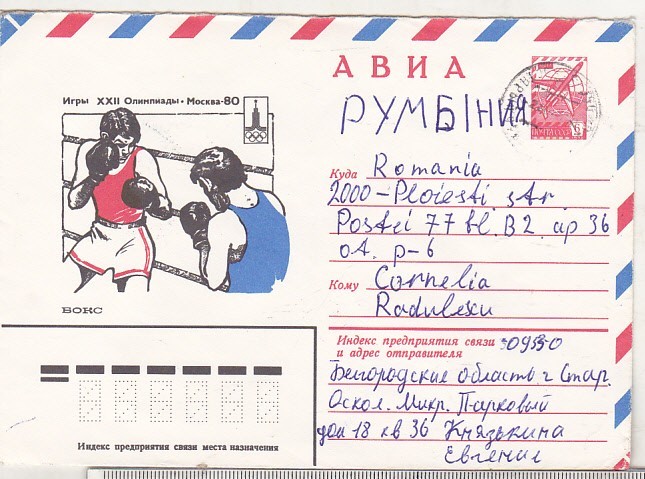 АВИА
Игры XXII Олимпиады • Москва-80
РУМЫНИЯ
ПОЧТА СССР
Куда Romania
2000-Ploiesti str
Postei 77 bl. B2 ap 36
p-6
Кому Cornelia
Radulescu
БОКС
Индекс предприятия связи
и адрес отправителя
Белгородские область г Стар.
Оскол. Микр. Парковый
дом 18 кв 36 Князькина
Евгения
Индекс предприятия связи места назначения